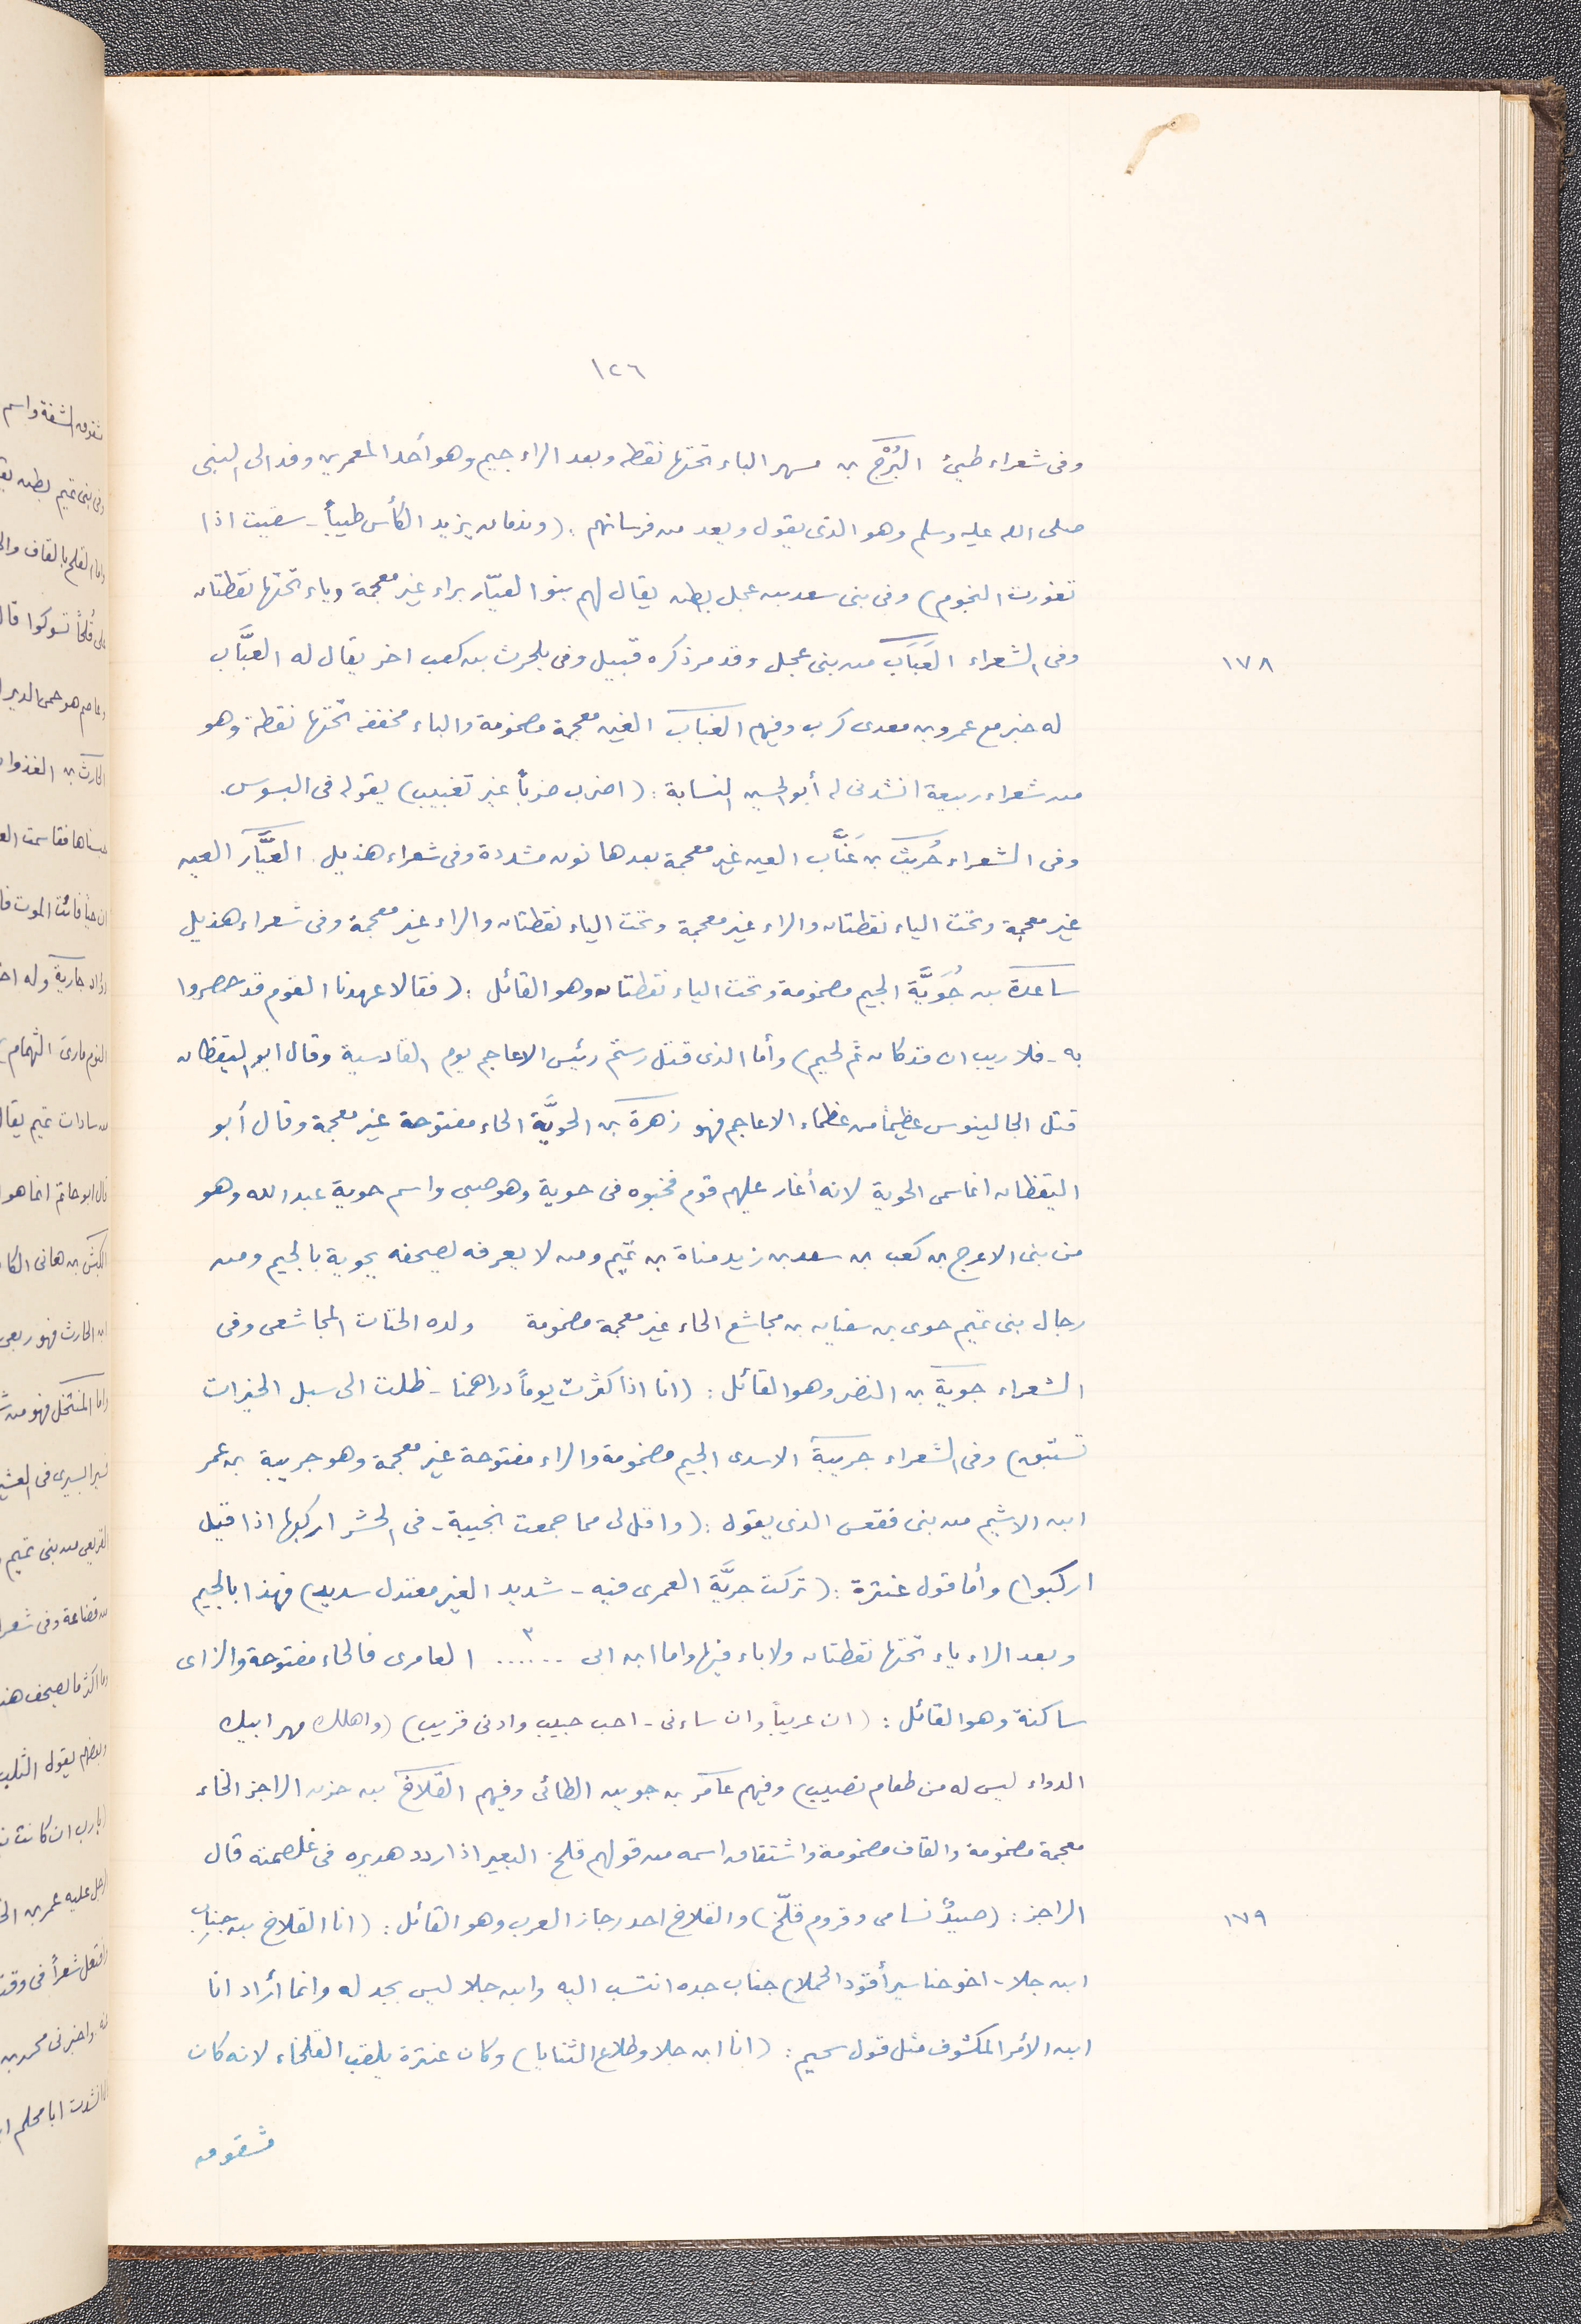 ١٢٦
وفى شعراء طيئ البُرْج بن مسهر الباء تحتها نقطه وبعد الراء جيم وهو أحد المعمرين وفد الى النبى
صلى الله عليه وسلم وهو الذى يقول ويعد من فرسانهم : (وندمان يزيد الكأس طيباً - سقيت اذا
تغورت النجوم) وفى بنى سعد بن عجل بطن يقال لهم بنو العيّار براء غير معجمة وياء تحتها نقطتان
وفى الشعراء العَبَاب من بنى عجل وقد مر ذكره قبيل وفى بلحرث بن كعب اخر يقال له العبَّاب
١٧٨
له خبر مع عمرو بن معدى كرب وفيهم الغباب الغين معجمة مضمومة والباء مخففه تحتها نقطة وهو
من شعراء ربيعة انشدنى له أبو الحسين النسابة : (اضرب ضرباً غير تغبيب) يقوله فى البسوس.
وفى الشعراء حُريث بن عَنَّاب العين غير معجمة بعدها نون مشددة وفى شعراء هذيل. العيَّار العين
غير معجمة وتحت الياء نقطتان والراء غير معجمة وتحت الياء نقطتان والراء غير معجمة وفى شعراء هذيل
ساعدة بن جُوَيَّة الجيم مضمومة وتحت الياء نقطتان وهو القائل : (فقالا عهدنا القوم قد حصروا
به - فلا ريب ان قد كان ثم لحيم) وأما الذى قتل رستم رئيس الاعاجم يوم القادسية وقال ابو اليقظان
قتل الجالينوس عظيماً من عظماء الاعاجم فهو زهرة بن الحويَّة الحاء مفتوحة غير معجمة وقال أبو
اليقظان انما سمى الحوية لانه أغار عليهم قوم فخبوه فى حوية وهو صبى واسم حوية عبد الله وهو
من بنى الاعرج بن كعب بن سعد بن زيد مناة بن تميم ومن لا يعرفه يصحفه بجوية بالجيم ومن
رجال بنى تميم حوى بن سفيان بن مجاشع الحاء غير معجمة مضمومة ولده الحتات المجاشعى وفى
الشعراء جوية بن النضر وهو القائل : (انا اذا كثرت يوماً دراهمنا - ظلت الى سبل الخيرات
تستبق) وفى الشعراء جريبة الاسدى الجيم مضمومة والراء مفتوحة غير معجمة وهو جريبة بن عمر
ابن الاشيم من بنى فقعس الذى يقول : (واقل لى مما جمعت نجيبة - فى الحشر اركبها اذا قيل
اركبوا) وأما قول عنترة : (تركت جريَّة العمرى فيه - شديد الغير معتدل سديد) فهذا بالجيم
وبعد الراء ياء تحتها نقطتان ولا باء فيها واما ابن ابى ...... ٣ العامرى فالحاء مفتوحة والزاى
ساكنة وهو القائل : (ان عريباً وان ساءنى - احب حبيب وادنى قريب) (واهلك مهر ابيك
الدواء ليس له من طعام نصيب) وفيهم عامر بن جوين الطائى وفيهم القلاخ بن حزن الراجز الخاء
معجمة مضمومة والقاف مضمومة واشتقاق اسمه من قولهم قلخ البعير اذا ردد هديره فى غلصمته قال
الراجز : (صيدٌ تسامى وقروم قلّخ) والقلاخ احد رجاز العرب وهو القائل : (انا القلاخ بن جنابِ
١٧٩
ابن جلا - اخو خناسير أقود الجملا) جناب جده انتسب اليه وابن جلا ليس بجد له وانما أراد انا
ابن الأمر المكشوف مثل قول سحيم : (انا ابن جلا وطلاع الثنايا) وكان عنترة يلقب الفلحاء لانه كان
مشقوق